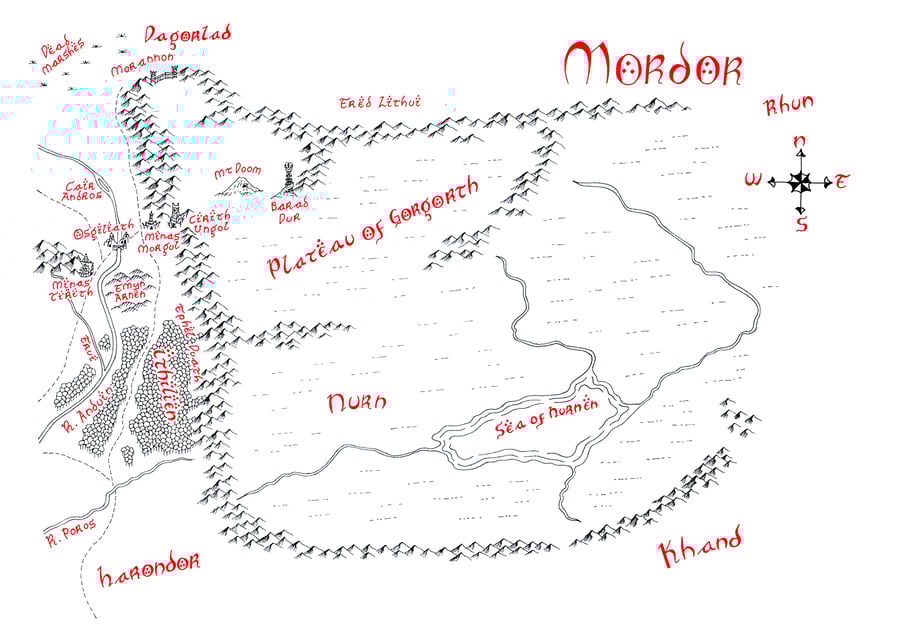 Dead
Marshes
Dagorlad
Morannon
Mordor
Ered Lithui
Rhun
N
W
E
S
Mt Doom
Barad
Dur
Cair
Andros
Osgiliath
Minas
Morgul
Cirith
Ungol
Plateau of Gorgorth
Minas
Tirith
Emyn
Arnen
Ephel Duath
Erui
Ithilien
R. Anduin
Nurn
Sea of Nurnen
R. Poros
Harondor
Khand